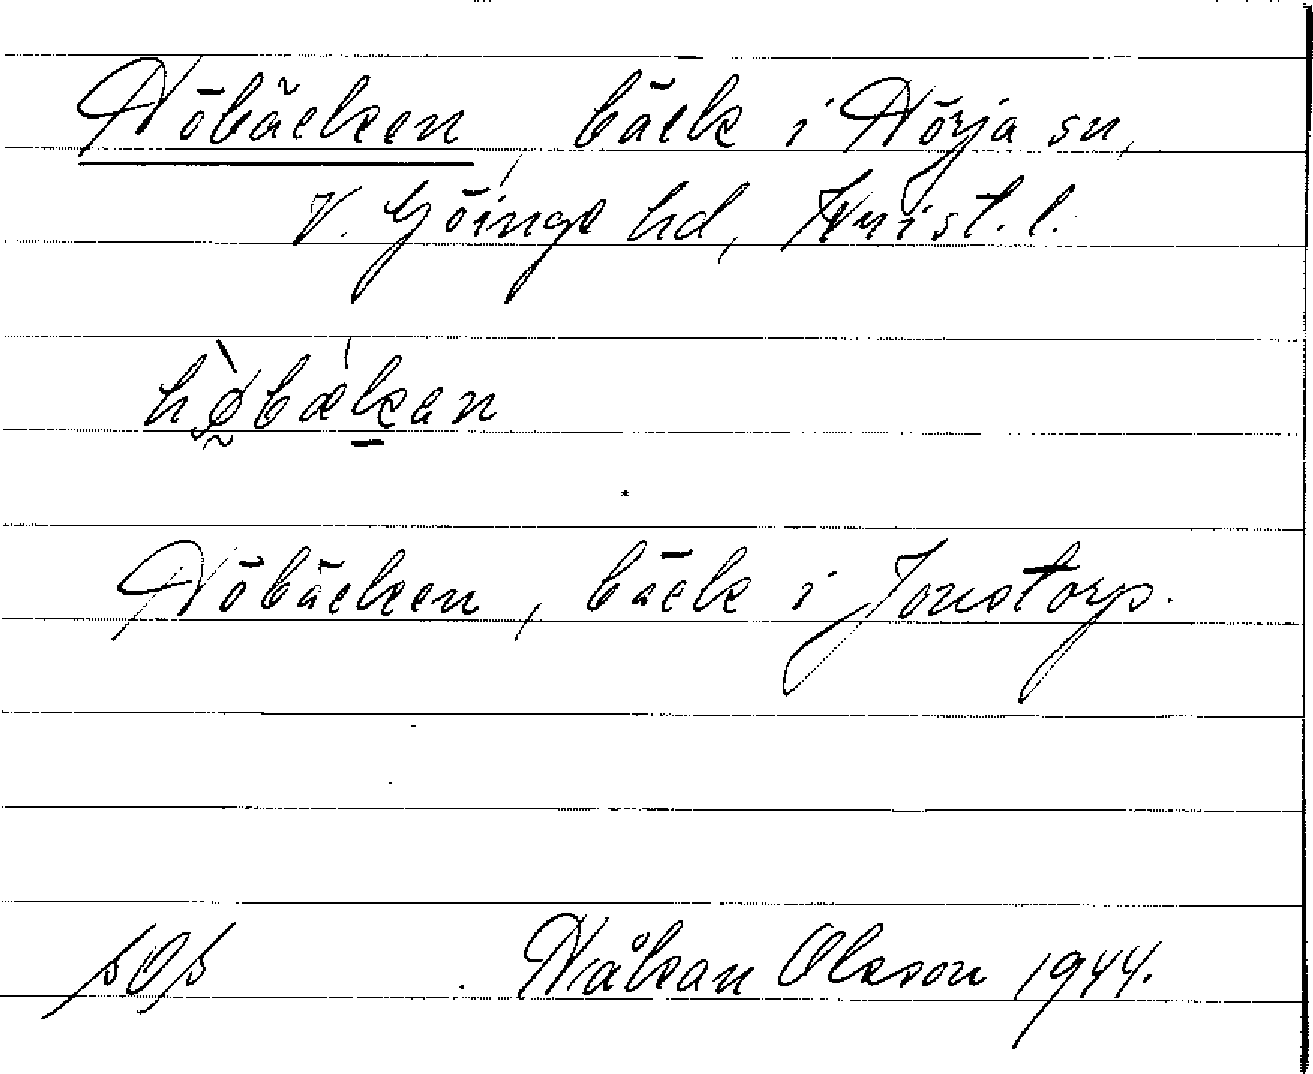 Höbäcken, bäck i Hörja sn,
V. Göinge hd, Krist. l.
hø̀bækan
Höbäcken, bäck i Jonstorp.
Håkan Olsson 1944.